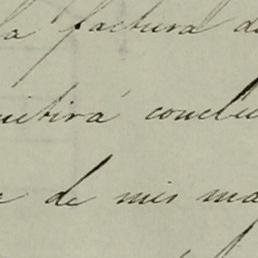 la factura de
mitirá conclu
e de mis ma